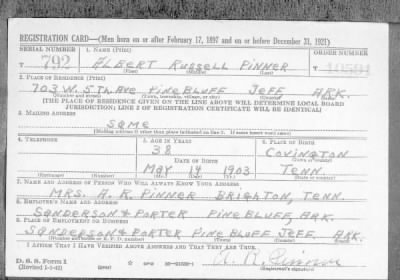 REGISTRATION CARD—(Men born on or after February 17, 1897 and on or before December 31, 1921)
SERIAL NUMBER 1. NAME (Print) ORDER NUMBER
T 792 ALBERT RUSSELL PINNER T 10591
(First) (Middle) (Last)
2. PLACE OF RESIDENCE (Print)
703 W. 5TH AVE PINE BLUFF JEFF ARK.
(Number and street) (Town, township, village, or city) (County) (State)
[THE PLACE OF RESIDENCE GIVEN ON THE LINE ABOVE WILL DETERMINE LOCAL BOARD
JURISDICTION; LINE 2 OF REGISTRATION CERTIFICATE WILL BE IDENTICAL]
3. MAILING ADDRESS
SAME
[Mailing address if other than place indicated on line 2. If same insert word same]
4. TELEPHONE 5. AGE IN YEARS 6. PLACE OF BIRTH
38 COVINGTON
DATE OF BIRTH (Town or county)
MAY 14 1903 TENN.
(Exchange) (Number) (Mo.) (Day) (Yr.) (State or country)
7. NAME AND ADDRESS OF PERSON WHO WILL ALWAYS KNOW YOUR ADDRESS
MRS. A. R. PINNER BRIGHTON, TENN.
8. EMPLOYER'S NAME AND ADDRESS
SANDERSON & PORTER PINE BLUFF, ARK.
9. PLACE OF EMPLOYMENT OR BUSINESS
SANDERSON & PORTER PINE BLUFF JEFF. ARK.
(Number and street or R. F. D. number) (Town) (County) (State)
I AFFIRM THAT I HAVE VERIFIED ABOVE ANSWERS AND THAT THEY ARE TRUE.
D. S. S. Form 1
(Revised 1-1-42) (over) A. R. Pinner
(Registrant's signature)